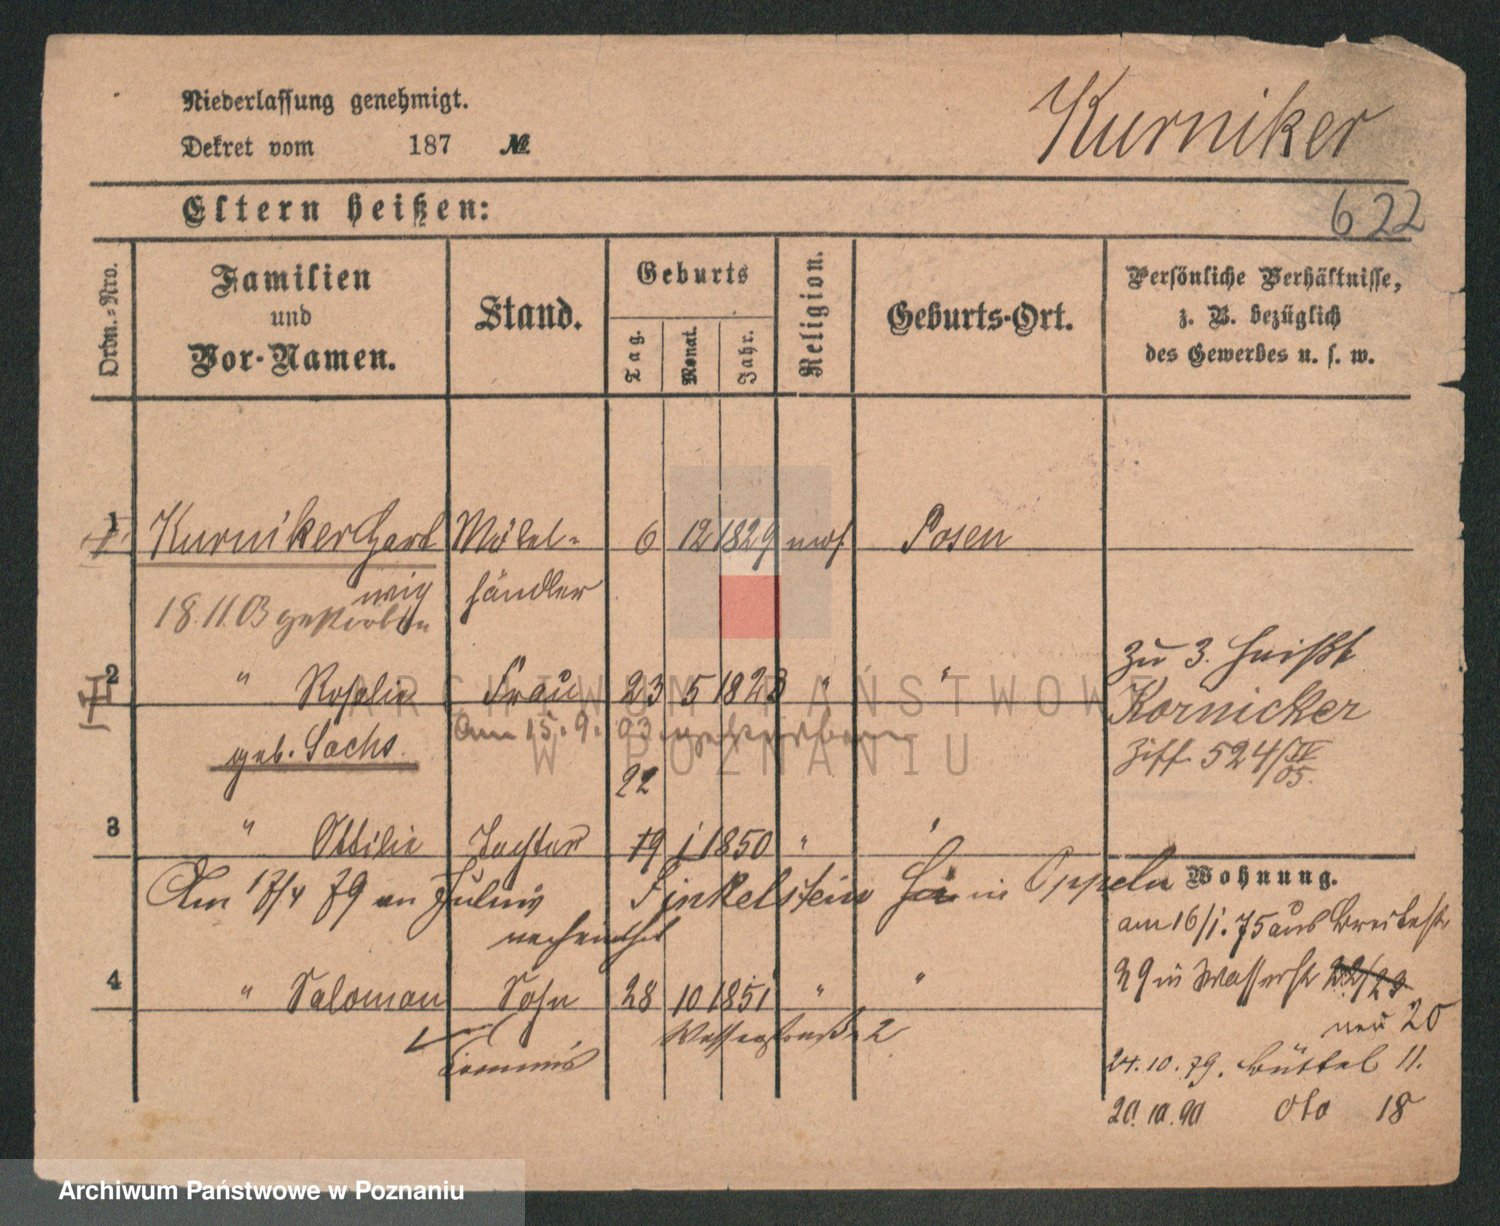 Niederlassung genehmigt.
Dekret vom 187 №
Kurniker
622
Eltern heißen:
Ordn.-Nro.
Familien
und
Vor-Namen.
Stand.
Geburts
Tag.
Monat.
Jahr.
Religion.
Geburts-Ort.
Persönliche Verhältnisse,
z. B. bezüglich
des Gewerbes u. s. w.
1 Kurniker Hart Möbel- 6 12 1829 mos. Posen
wig händler
18.11.03 gestorben
2 " Rosalie Frau 23 5 1828 " "
geb. Sachs
am 15.9.03 gestorben
22
zu 3. heißt
Kornicker
Ziff. 524/IV 05.
3 " Ottilie Tochter 19 1 1850 "
Am 17/4 79 an Julius Finkelstein in Oppeln
verheirathet
4 " Salomon Sohn 28 10 1851 " "
Commis
Wasserstraße 2
Wohnung.
am 16/1. 75 aus Breitestr
29 in Wasserstr 22/23
neu 20
24.10.79. Büttel 11.
20.10.90 dto 18
ARCHIWUM PAŃSTWOWE
W POZNANIU
Archiwum Państwowe w Poznaniu